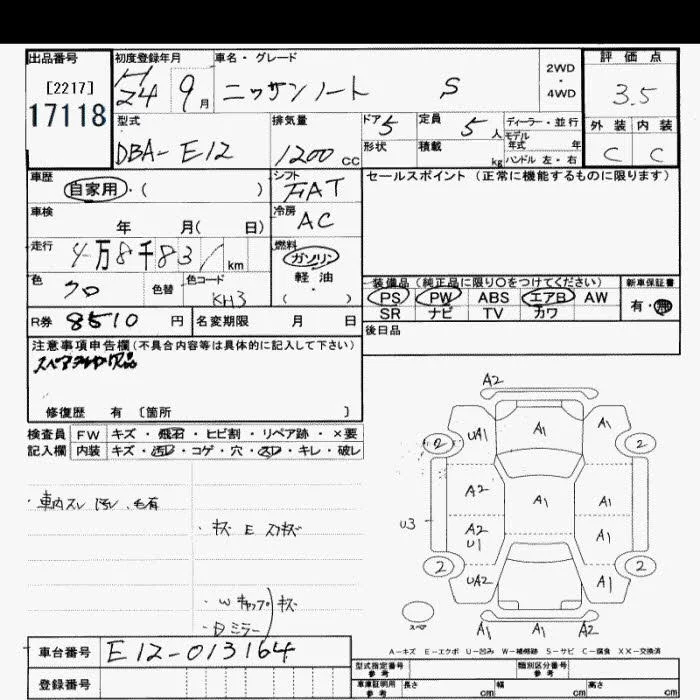 出品番号
[2217]
17118
初度登録年月
H24 9月
車名・グレード
ニッサンノート S
2WD
・
4WD
評価点
3.5
外装 内装
C C
型式
DBA-E12
排気量
1200 CC
ドア 5
形状
定員 5 人
積載 kg
ディーラー・並行
モデル
年式 年
ハンドル 左・右
車歴
自家用・( )
シフト
FAT
セールスポイント (正常に機能するものに限ります)
車検
年 月( 日)
冷房
AC
走行
4万8千831 km
燃料
ガソリン
軽油・
( )
色
クロ
色替
色コード
KH3
装備品 (純正品に限り○をつけてください)
PS PW ABS エアB AW
SR ナビ TV カワ
新車保証書
有・無
R券 8510 円
名変期限 月 日
後日品
注意事項申告欄(不具合内容等は具体的に記入して下さい)
修復歴 有 〔箇所 〕
検査員
記入欄
FW キズ・飛石・ヒビ割・リペア跡・×要
内装 キズ・汚レ・コゲ・穴・スレ・キレ・破レ
・車内スレ 汚レ、毛有
・キズ E スリキズ
・Wキャップ
・Bミラー
キズ
A2
2 UA1 A1 A1 2
A2 A1 A1
U3
A2
U1
A1
2 UA2 A1 2
スペア
A1 A1 A2
A-キズ E-エクボ U-凹み W-補修跡 S-サビ C-腐食 XX-交換済
車台番号 E12-013164
登録番号
型式指定番号
参考
類別区分番号
参考
車庫証明用
参考
長さ cm
幅 cm
高さ cm